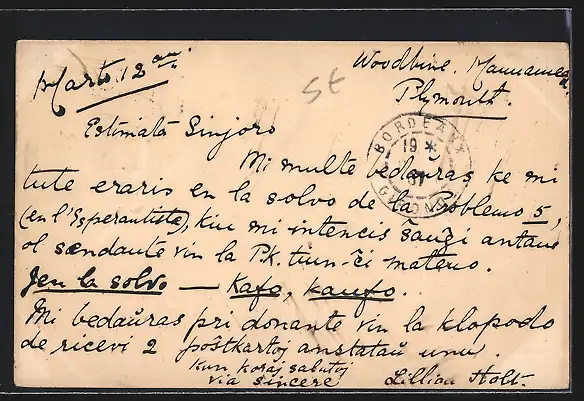 Marto 12an
Woodbine, Mannamead
Plymouth.
st
Estimata Sinjoro
BORDEAUX
19
07
GIRONDE
Mi multe bedauras ke mi
tute eraris en la solvo de la Problemo 5,
(en l'Esperantiste), kiu mi intencis ŝanĝi antau
ol sendante vin la P.k. tiun-ĉi mateno.
Jen la solvo — Kafo, kaufo.
Mi bedaŭras pri donante vin la klopodo
de ricevi 2 poŝtkartoj anstataŭ unu.
Kun koraj salutoj
via sincere Lillian Holt.